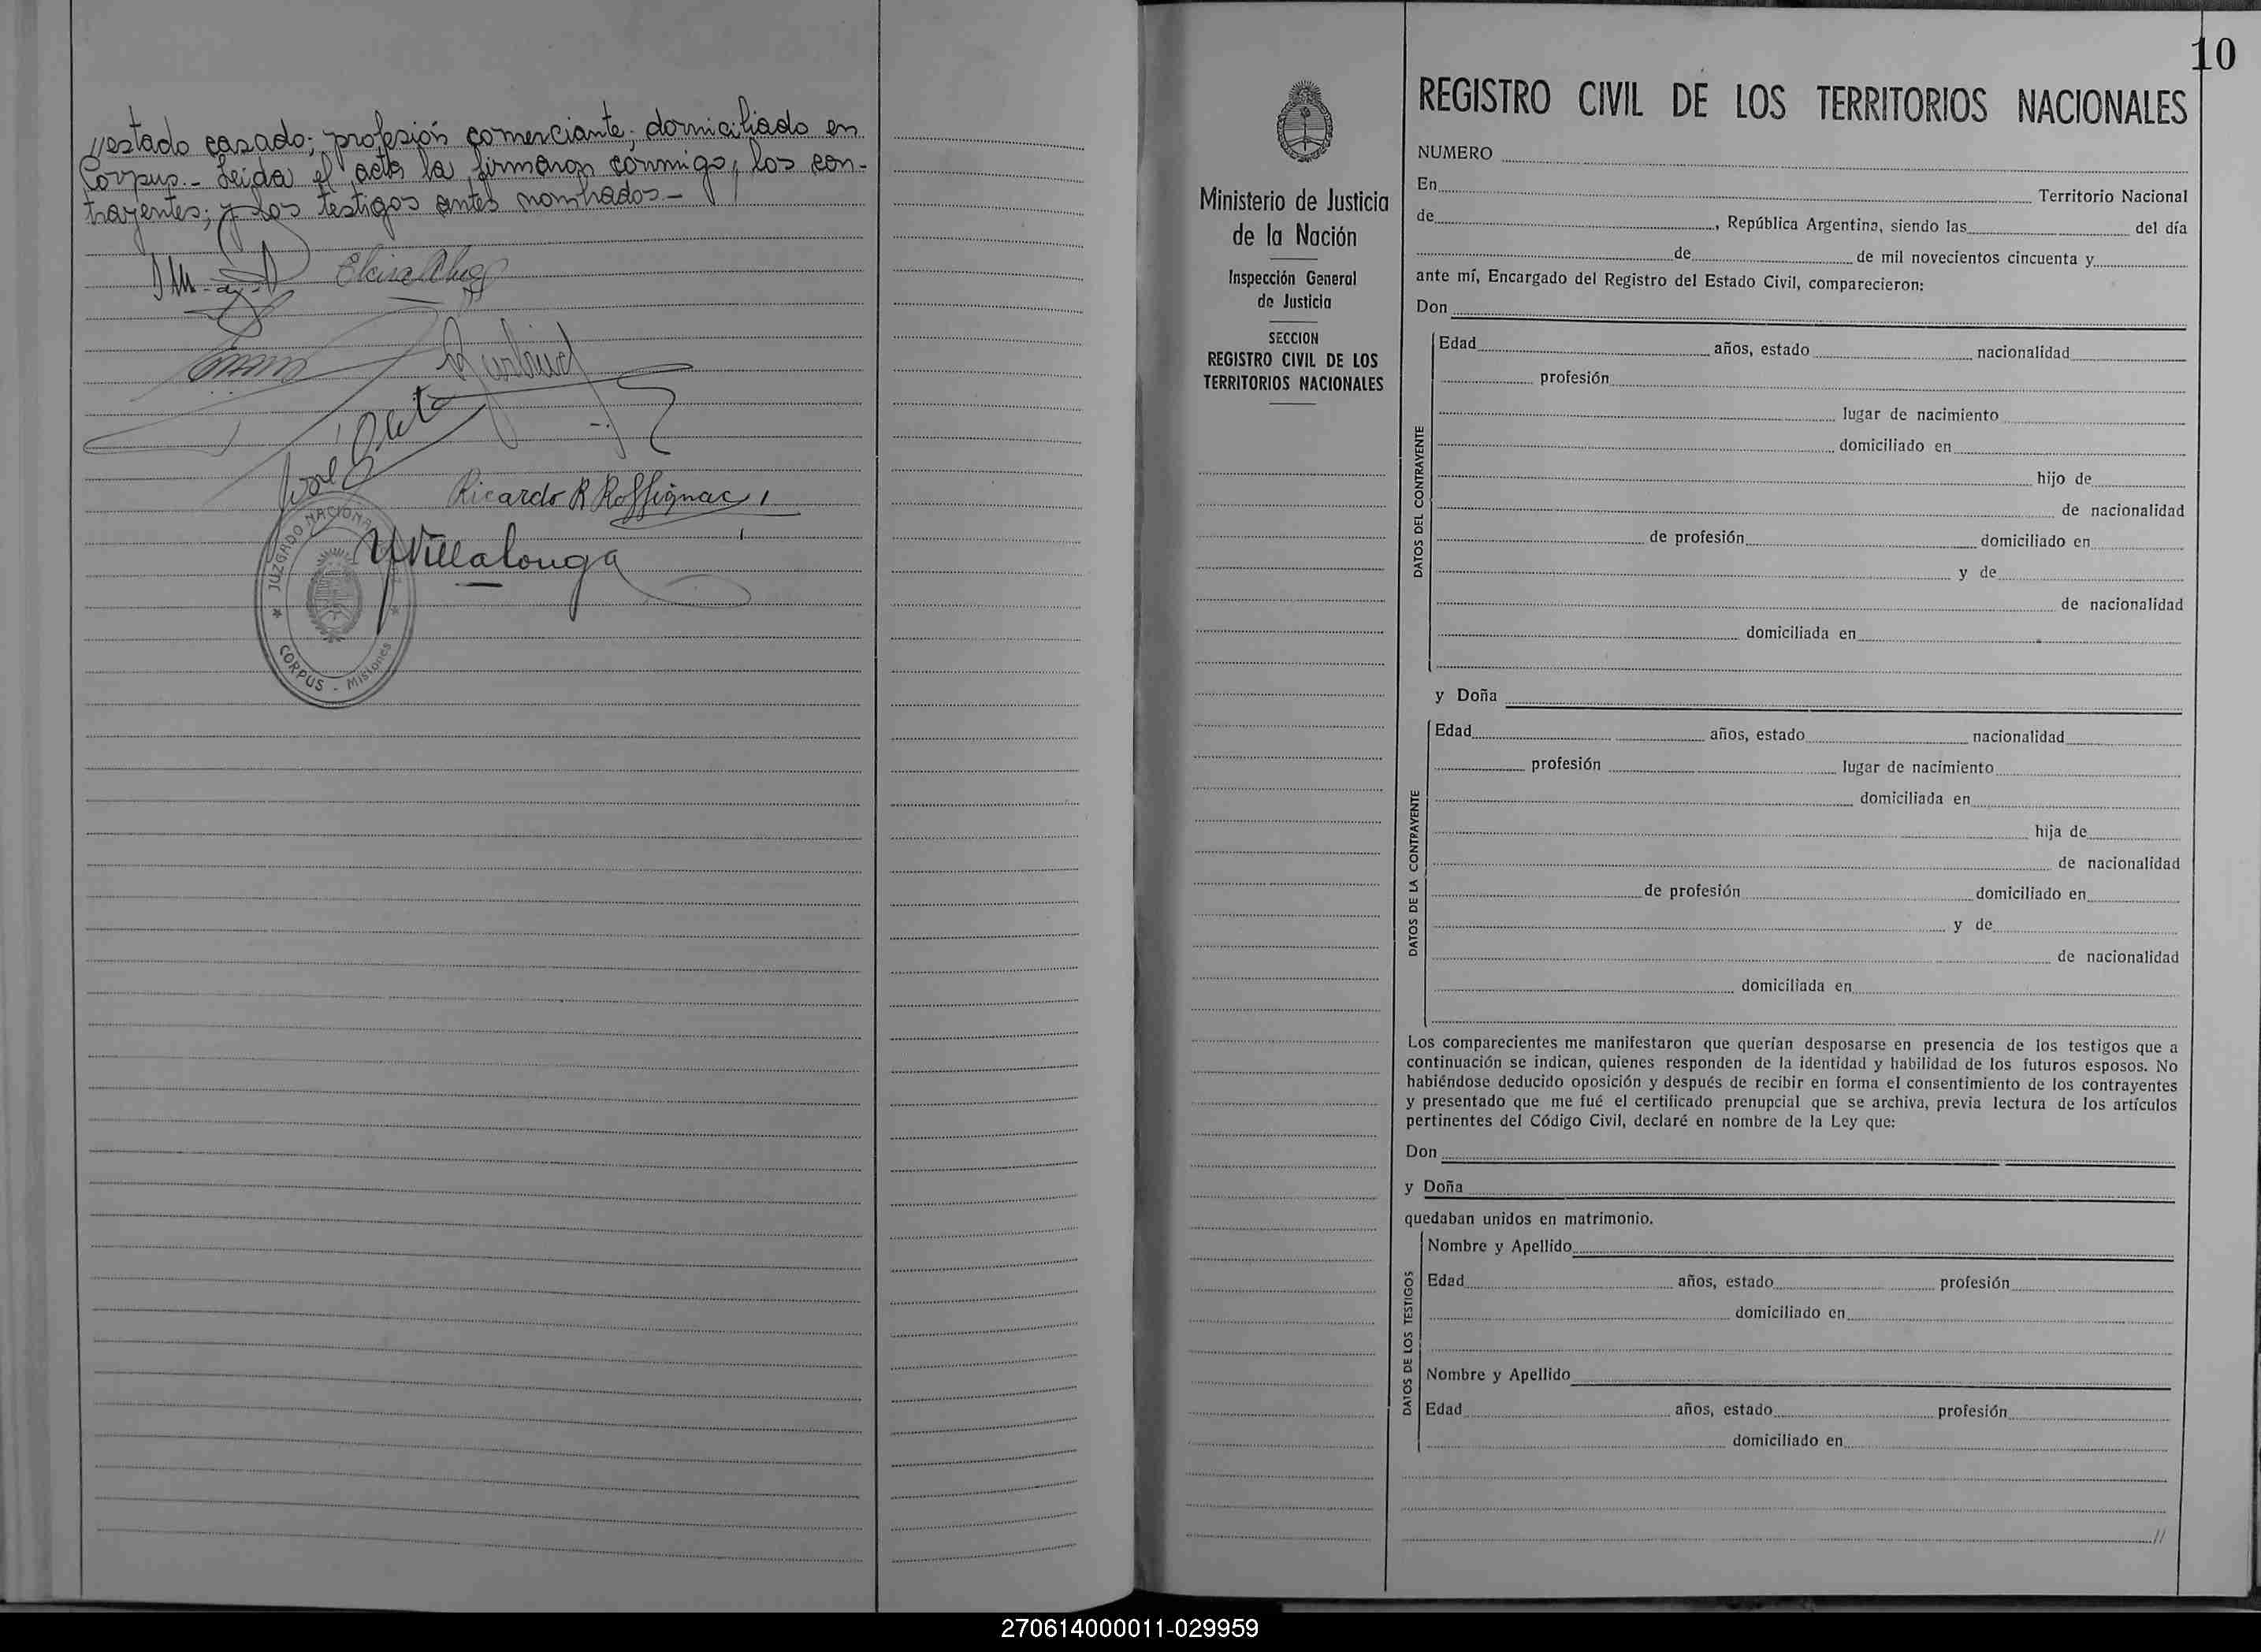 //estado casado; profesión comerciante; domiciliado en
Corpus.- Leida el acta la firmaron conmigo, los con-
trayentes; y los testigos antes nombrados.-
José
Ricardo R Roffignac
Villalonga
JUZGADO NACIONAL
CORPUS - Misiones
10
Ministerio de Justicia
de la Nación
Inspección General
de Justicia
SECCION
REGISTRO CIVIL DE LOS
TERRITORIOS NACIONALES
REGISTRO CIVIL DE LOS TERRITORIOS NACIONALES
NUMERO
En Territorio Nacional
de , República Argentina, siendo las del día
de de mil novecientos cincuenta y
ante mí, Encargado del Registro del Estado Civil, comparecieron:
Don
DATOS DEL CONTRAYENTE
Edad años, estado nacionalidad
profesión
lugar de nacimiento
domiciliado en
hijo de
de nacionalidad
de profesión domiciliado en
y de
de nacionalidad
domiciliada en
y Doña
DATOS DE LA CONTRAYENTE
Edad años, estado nacionalidad
profesión lugar de nacimiento
domiciliada en
hija de
de nacionalidad
de profesión domiciliado en
y de
de nacionalidad
domiciliada en
Los comparecientes me manifestaron que querían desposarse en presencia de los testigos que a
continuación se indican, quienes responden de la identidad y habilidad de los futuros esposos. No
habiéndose deducido oposición y después de recibir en forma el consentimiento de los contrayentes
y presentado que me fué el certificado prenupcial que se archiva, previa lectura de los artículos
pertinentes del Código Civil, declaré en nombre de la Ley que:
Don
y Doña
quedaban unidos en matrimonio.
DATOS DE LOS TESTIGOS
Nombre y Apellido
Edad años, estado profesión
domiciliado en
Nombre y Apellido
Edad años, estado profesión
domiciliado en
//
270614000011-029959